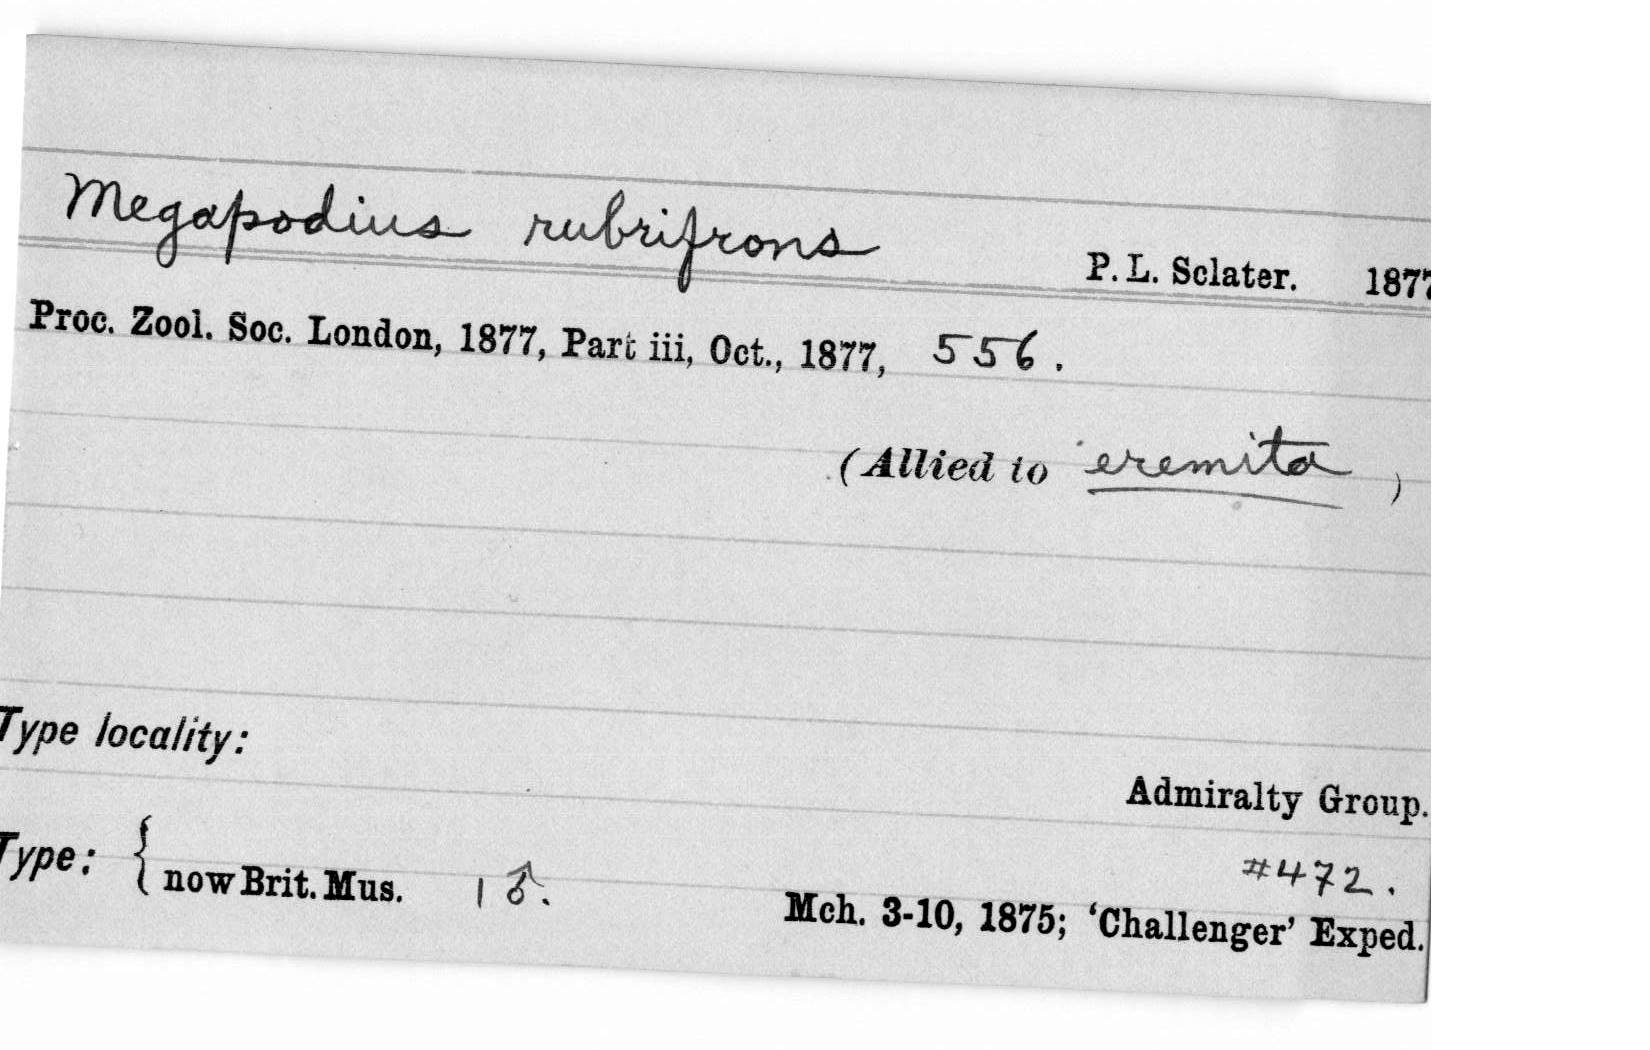 Megapodius rubrifrons P. L. Sclater. 1877
Proc. Zool. Soc. London, 1877, Part iii, Oct., 1877, 556.
(Allied to eremita)
Type locality:
Admiralty Group.
#472.
Type: { now Brit. Mus. 1 ♂. Mch. 3-10, 1875; ‘Challenger’ Exped.